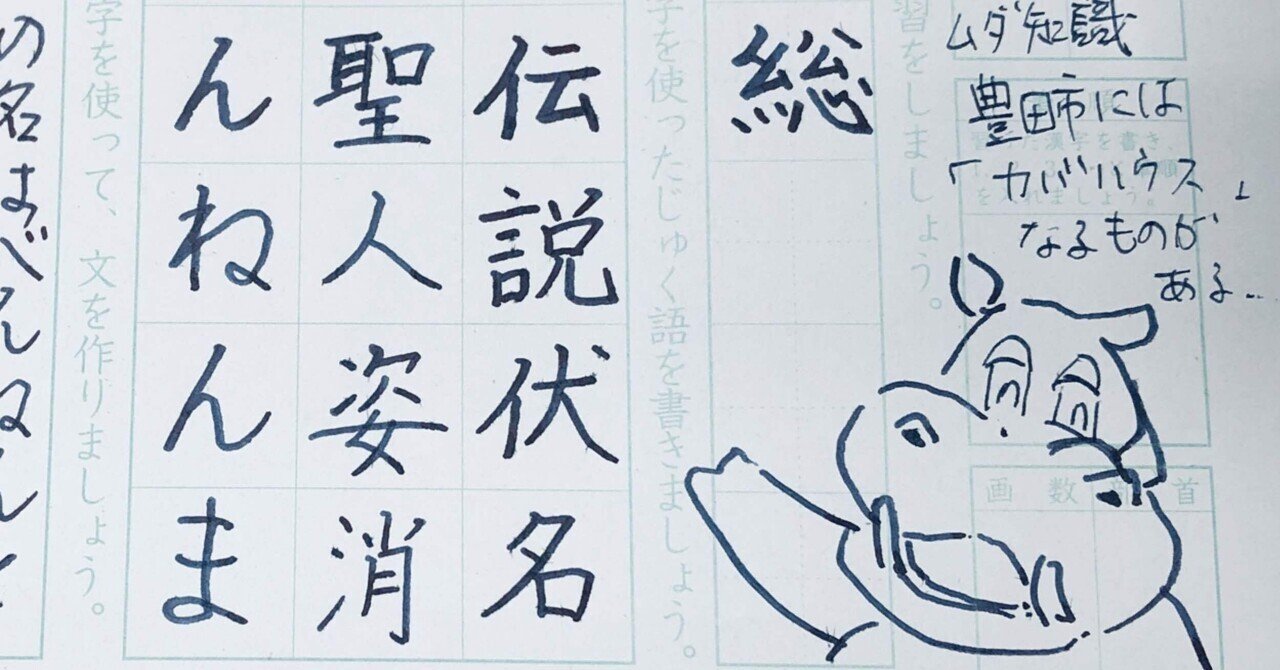 ムダ知識
豊田市には
「カバハウス」
なるものが
ある..
画数部首
習をしましょう。
総
字を使ったじゅく語を書きましょう。
伝説伏名
聖人姿消
んねんま
字を使って、文を作りましょう。
の名はべんねんと